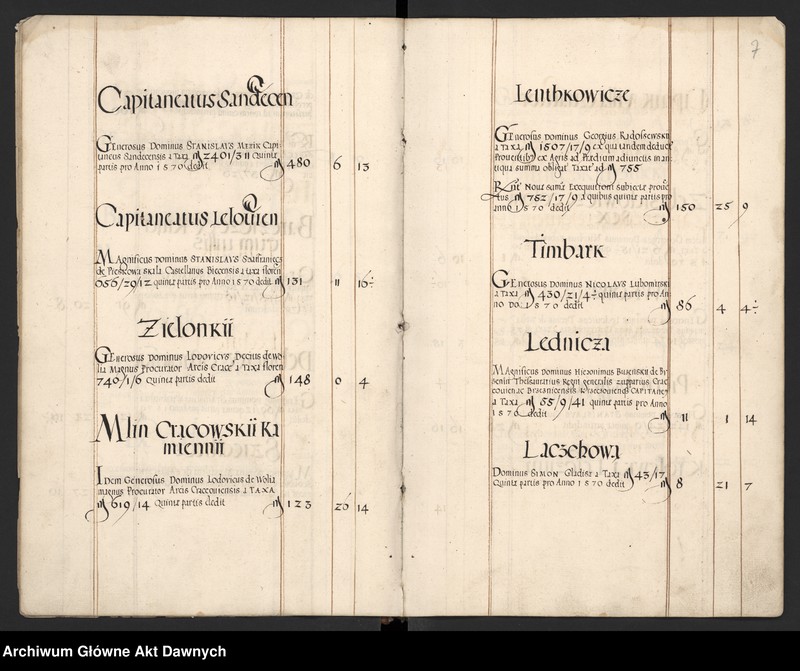 Capitaneatus Sandecen
Generosus Dominus STANISLAVS Mezik Capi
taneus Sandecensis a Taxa 2401/3 11 Quintæ
partis pro Anno 1570 dedit 480 6 13
Capitaneatus Lelovien
Magnificus Dominus STANISLAVS Szafraniecz
de Castellanus Biecensis a taxa floren
656/29/12 quintæ partis pro Anno 1570 dedit 131 11
Zielonkii
Generosus Dominus LODOVICVS Decius de Wo
lia Magnus Procurator Arcis Cracoviensis a Taxa floren
740/1/6 Quintæ partis dedit 148 0 4
Mlin Cracowskii Ka
miennii
Idem Generosus Dominus Lodovicus de Wolia
magnus Procurator Arcis Cracoviensis a TAXA
619/14 Quintæ partis dedit 123 26 14
7
Lenthkowicze
Generosus Dominus Georgius Radossewskii
a Taxa 1507/17/9 ex qua tandem deduct
Proventibus ex Agris ad Prædium adiunctis in an
tiqua summa obligat Taxat ad 755
Nova Executioni subiecta
752/17/9 a quibus quintæ partis pro
anno 1570 dedit 150 25 9
Timbark
Generosus Dominus NICOLAVS Lubomirski
a Taxa 430/21/4 quintæ partis pro An
no Do. 1570 dedit 86 4
Lednicza
Magnificus Dominus Hieronimus Buzenskii de Bu
zenin Thesaurarius Regni generalis zupparius Crac
CAPITANEVS
a Taxa 55/9/41 quintæ partis pro Anno
1570 dedit 11 1 14
Laczchowa
Dominus SIMON Gladisz a Taxa 43/17
Quintæ partis pro Anno 1570 dedit 8 21 7
Archiwum Główne Akt Dawnych